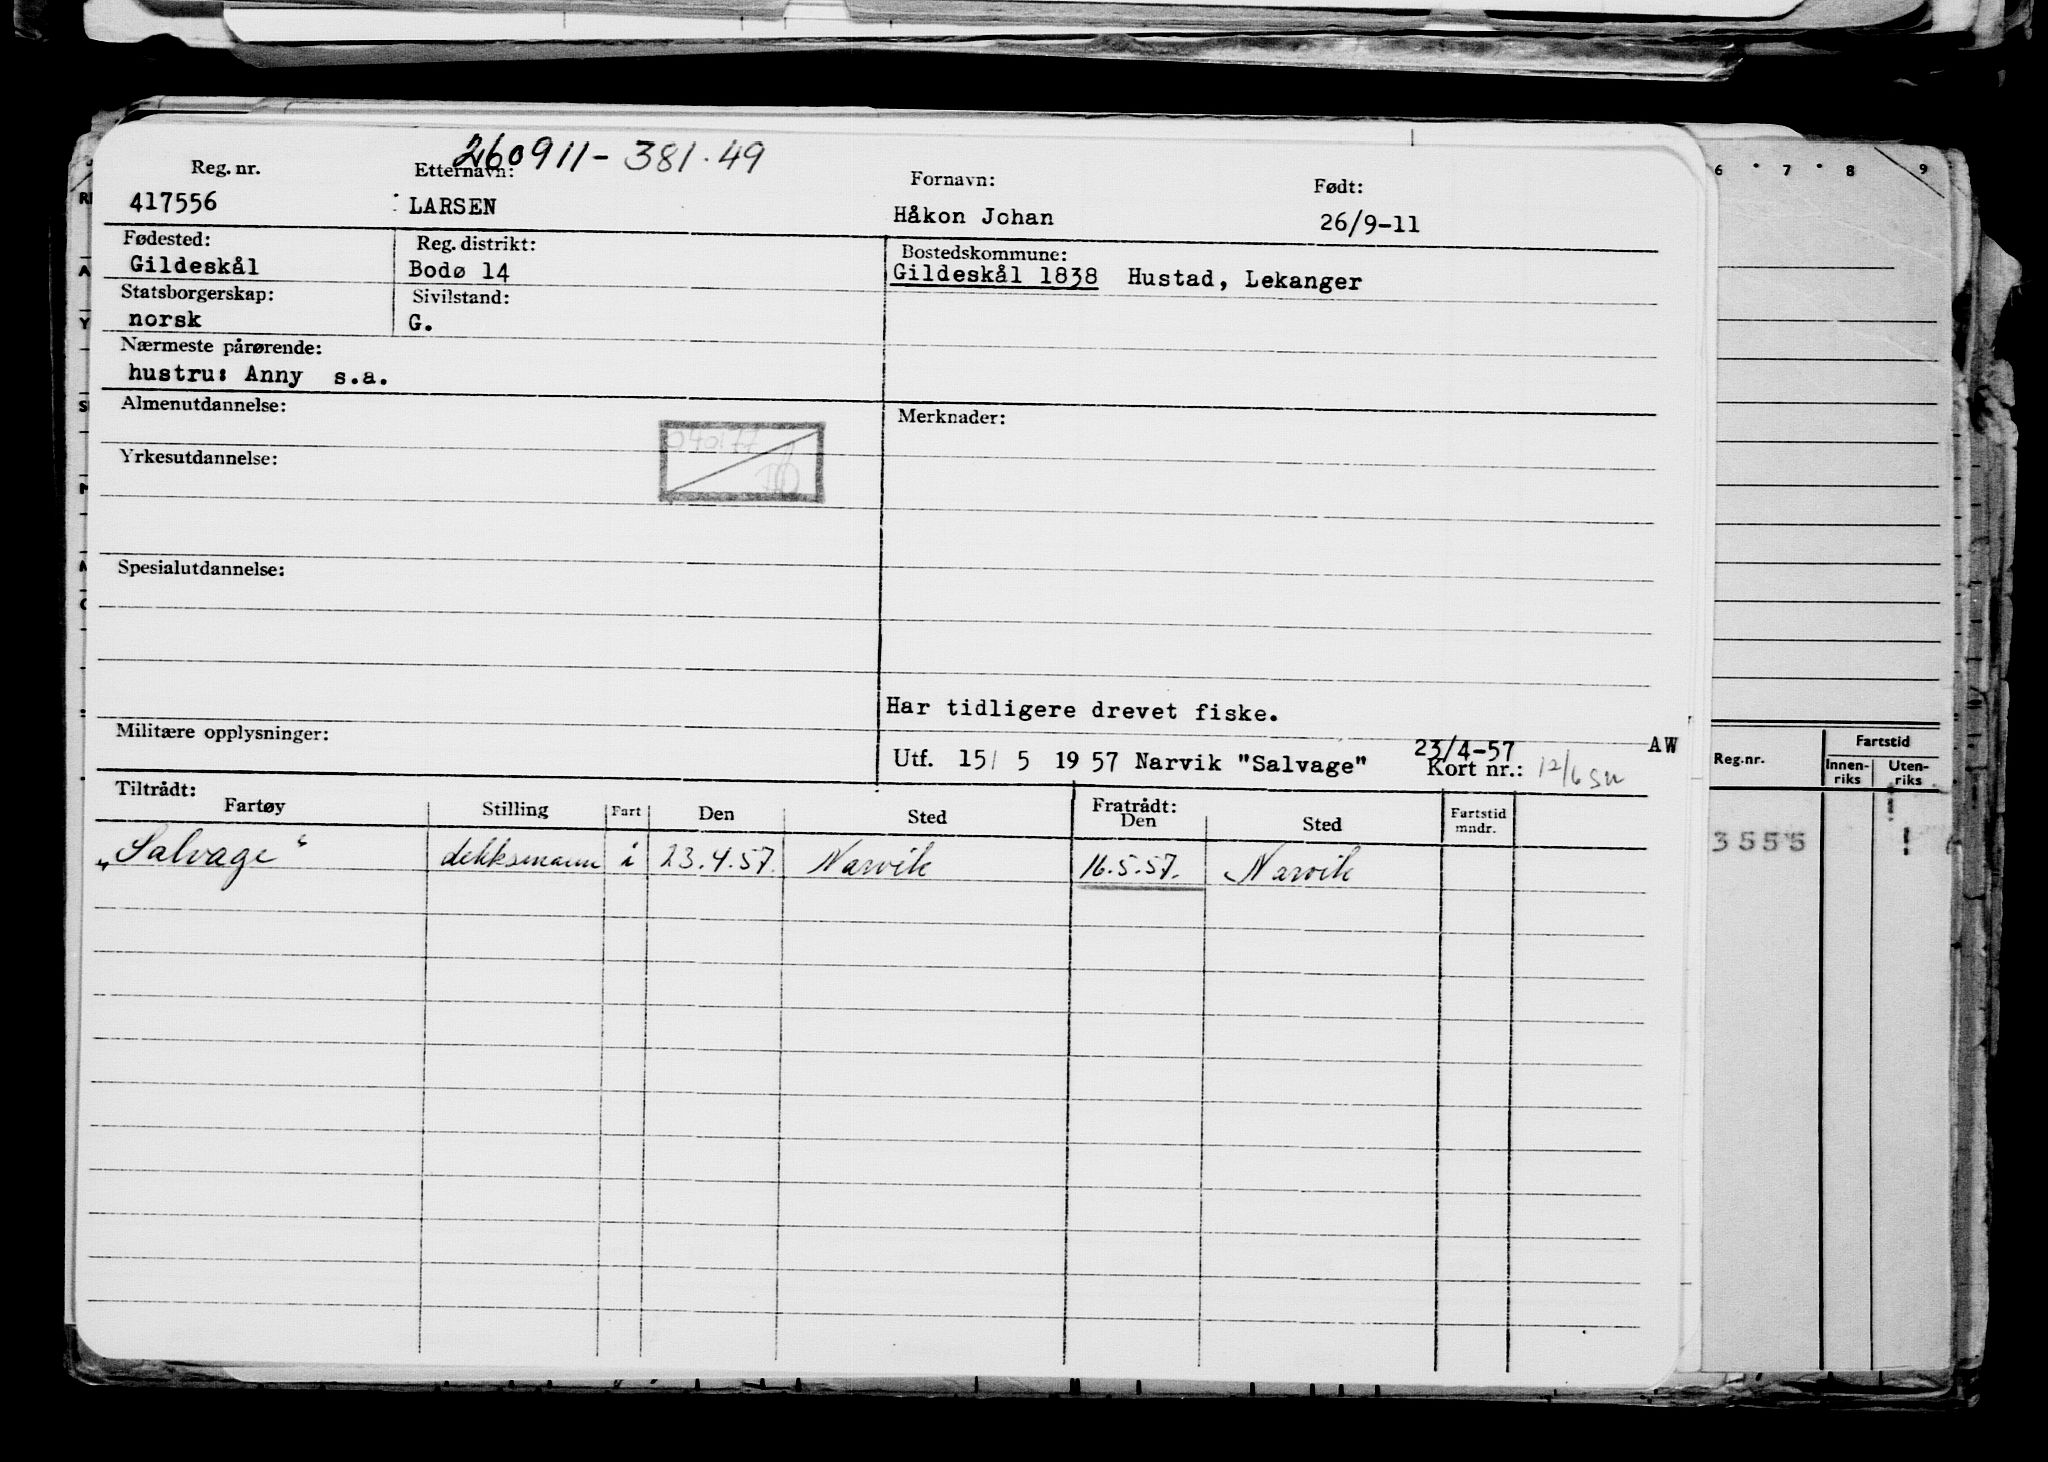 260911-381.49
Reg. nr. Etternavn: Fornavn: Født:
417556 LARSEN Håkon Johan 26/9-11
Fødested: Reg. distrikt: Bostedskommune:
Gildeskål Bodø 14 Gildeskål 1838 Hustad, Lekanger
Statsborgerskap: Sivilstand:
norsk G.
Nærmeste pårørende:
hustru: Anny s.a.
Almenutdannelse: Merknader:
Yrkesutdannelse:
Spesialutdannelse:
Har tidligere drevet fiske.
Militære opplysninger:
23/4-57 AW
Utf. 15/ 5 19 57 Narvik "Salvage" Kort nr.: 12/6
Tiltrådt: Fratrådt:
Fartøy Stilling Fart Den Sted Den Sted Fartstid mndr.
"Salvage" dekksmann i 23.4.57. Narvik 16.5.57. Narvik
6 7 8 9
Reg.nr. Fartstid
Innen-riks Uten-riks
3555